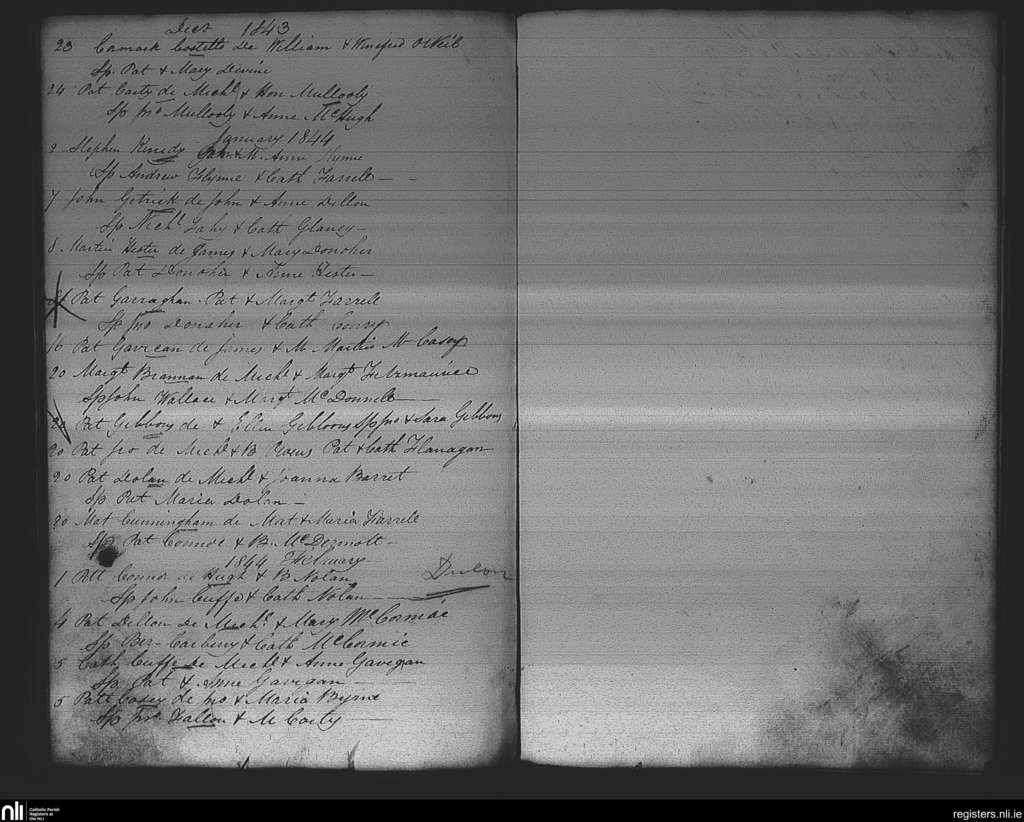 Decr 1843
23 Cormack Costello de William & Winefred O'Neil
Sp. Pat & Mary Devine
24 Pat Carty de Michl & Hon Mullooly
Sp Jno Mullooly & Anne McHugh
January 1844
2 Stephen Kenedy & M. Anne Flynne
Sp Andrew Flynne & Cath Farrell
7 John Getrick de John & Anne Dillon
Sp Michl Fahy & Cath Glancy
8 Martin Hester de James & Mary Donoher
Sp Pat Donoher & Anne Hester
Pat Garraghan Pat & Margt Farrell
Sp Jno Donaher & Cath Conry
16 Pat Gavican de James & M Martin Mc Casey
20 Margt Brannan de Michl & Margt Fitzmaurice
Sp John Wallace & Margt McDonnell
20 Pat Gibbons de & Ellen Gibbons Sp Jno & Sara Gibbons
20 Pat Jno de Michl & B Pat & Cath Flanagan
20 Pat Dolan de Michl & Joanna Barret
Sp Pat Maria Dolan
20 Mat Cunningham de Mat & Maria Farrell
Sp Pat Connor & B. McDermott
1844 February
1 Patt Connor de Hugh & B Nolan
Dillon
Sp John Cuffe & Cath Nolan
4 Pat Dillon de Michl & Mary McCormac
Sp Ber- & Cath McCormic
5 Cath Cuffe de Michl & Anne Gavigan
Sp Pat & Anne Gavigan
5 Patt Casey de Jno & Maria Byrne
Sp Jno Fallon & M Carty
nli
Catholic Parish
Registers at
the NLI
registers.nli.ie